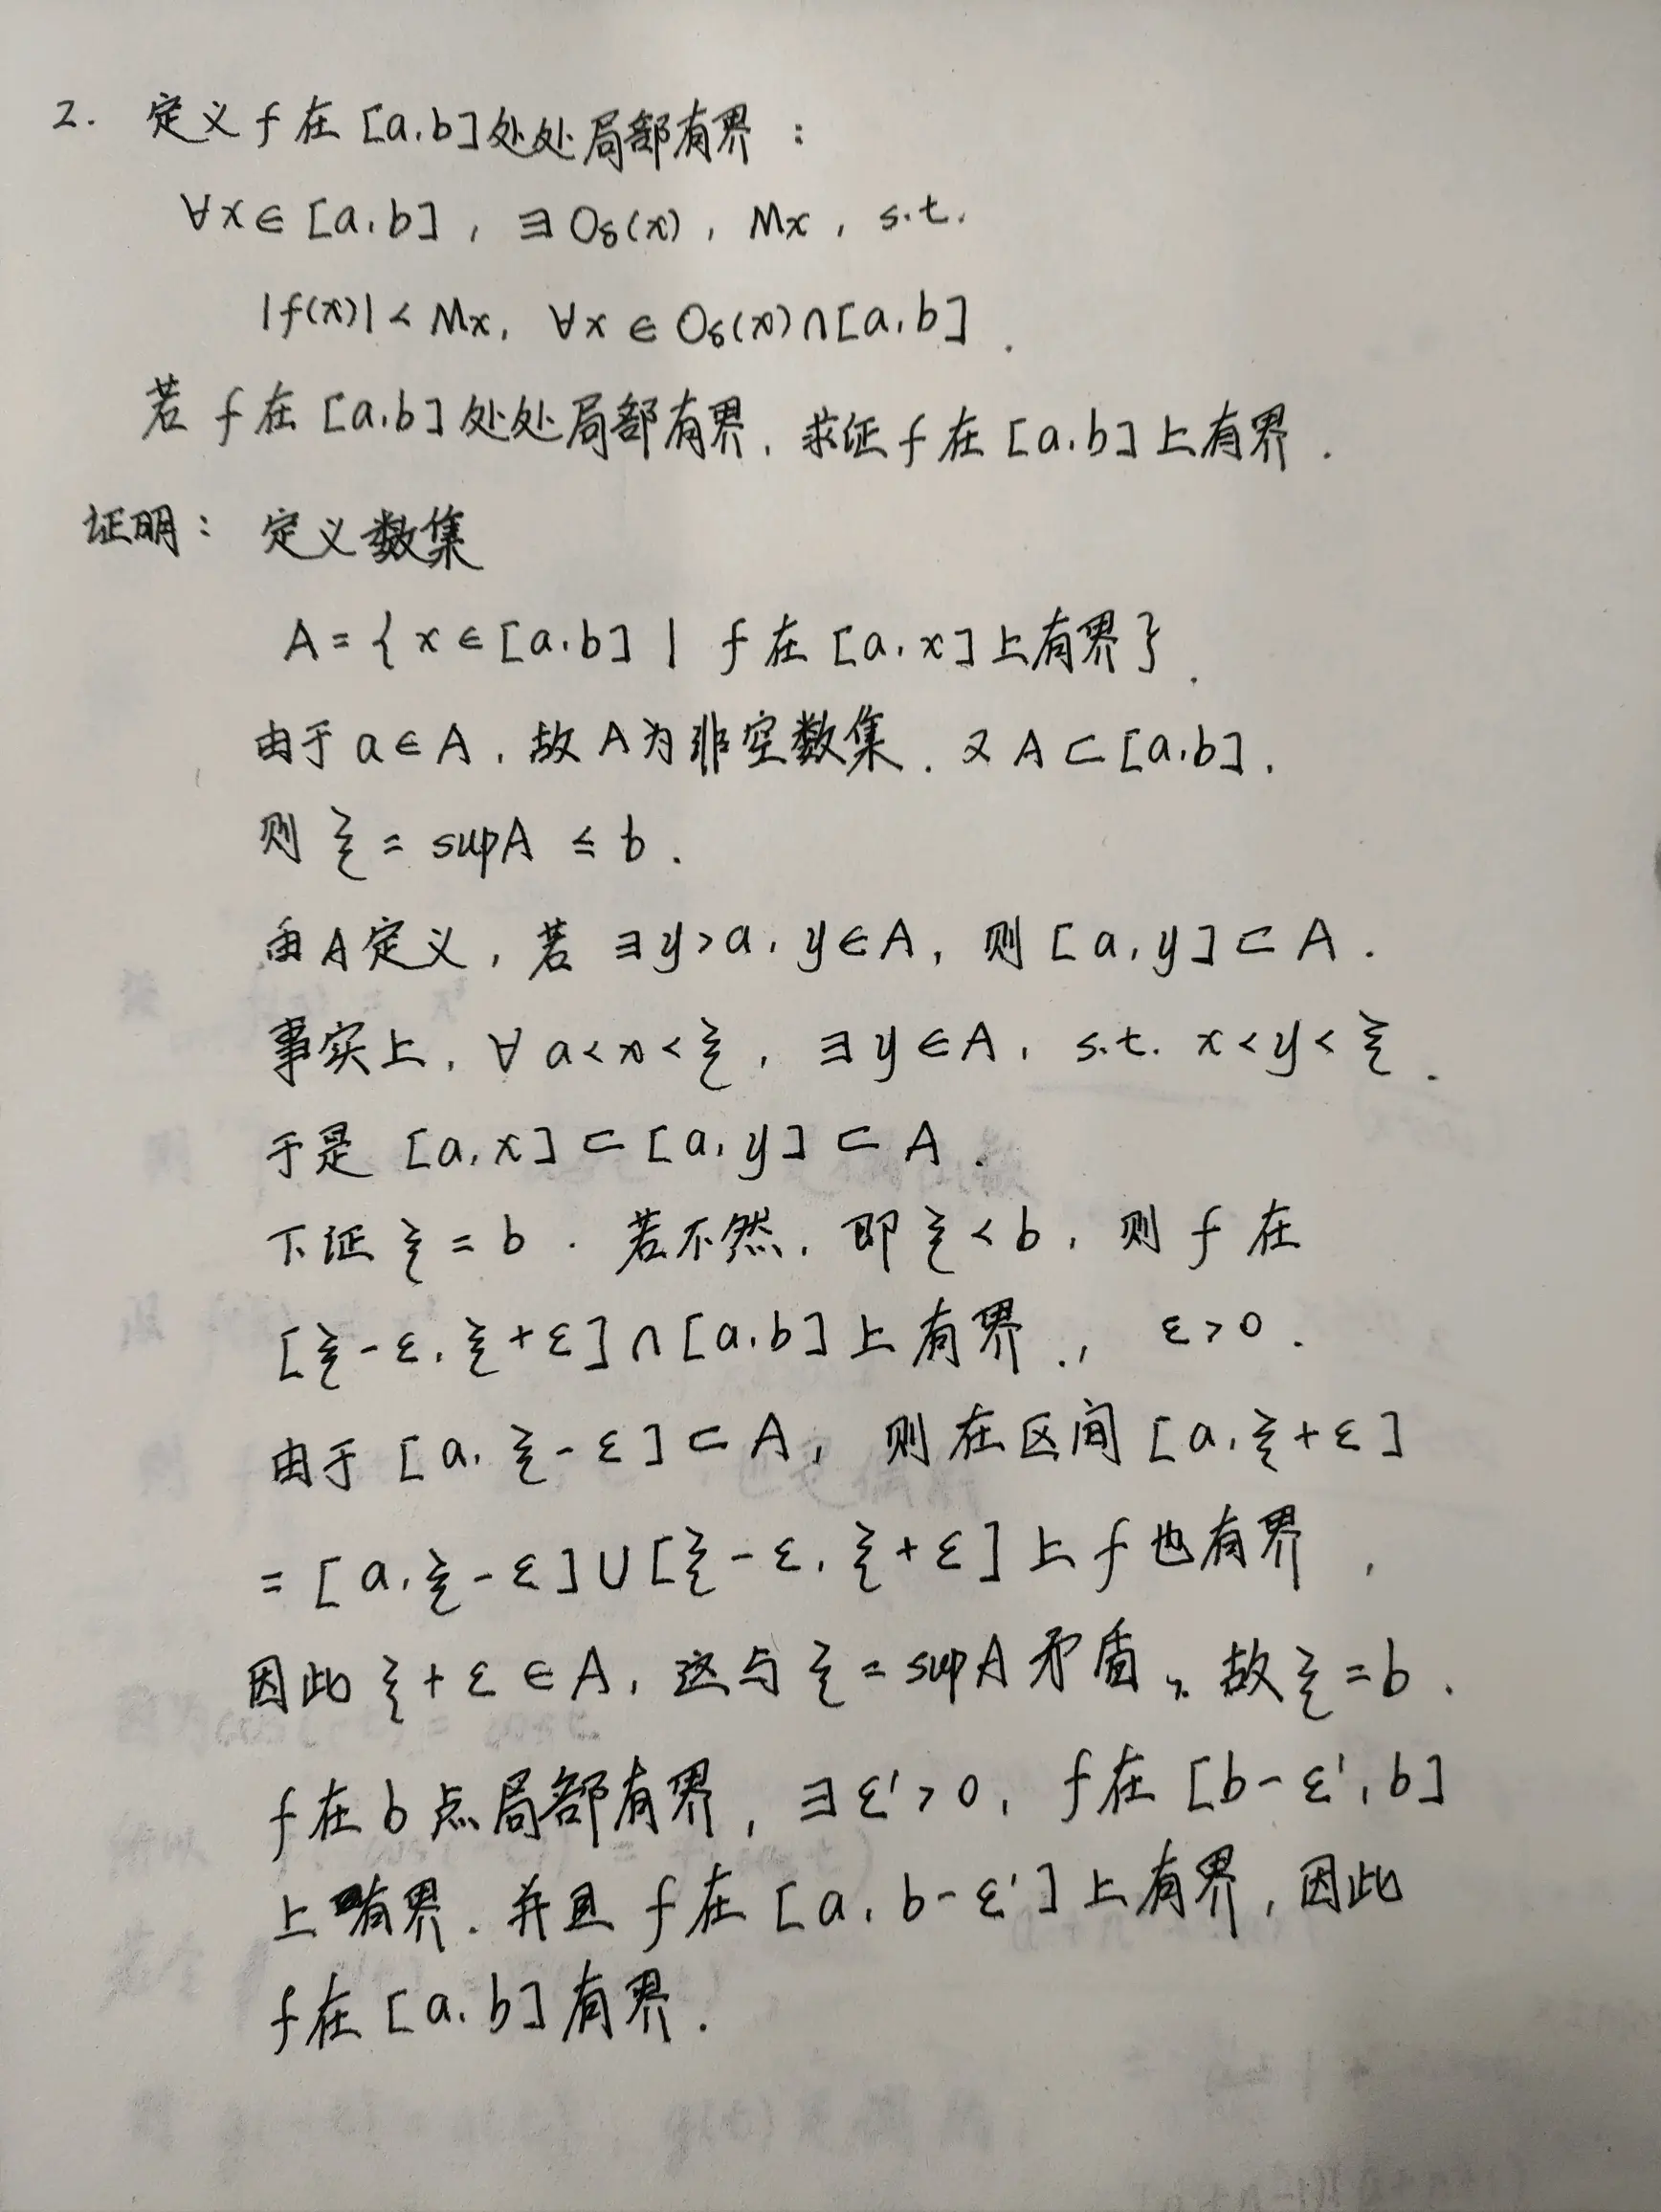 2. 定义 f 在 [a,b] 处处局部有界：
∀x∈[a,b]，∃ Oδ(x)，Mx，s.t.
|f(x)| < Mx, ∀x ∈ Oδ(x)∩[a,b].
若 f 在 [a,b] 处处局部有界, 求证 f 在 [a,b] 上有界.
证明：定义数集
A = { x∈[a,b] | f 在 [a,x] 上有界 }.
由于 a∈A, 故 A 为非空数集. 又 A⊂[a,b],
则 ξ = supA ≤ b.
由A定义，若 ∃y>a, y∈A, 则 [a,y]⊂A.
事实上, ∀ a<x<ξ, ∃y∈A, s.t. x<y<ξ.
于是 [a,x]⊂[a,y]⊂A.
下证 ξ=b. 若不然, 即 ξ<b, 则 f 在
[ξ-ε, ξ+ε]∩[a,b] 上有界, ε>0.
由于 [a, ξ-ε]⊂A, 则在区间 [a, ξ+ε]
= [a, ξ-ε]∪[ξ-ε, ξ+ε] 上 f 也有界,
因此 ξ+ε∈A, 这与 ξ=supA 矛盾. 故 ξ=b.
f 在 b 点局部有界, ∃ε'>0, f 在 [b-ε', b]
上有界. 并且 f 在 [a, b-ε'] 上有界, 因此
f 在 [a,b] 有界.